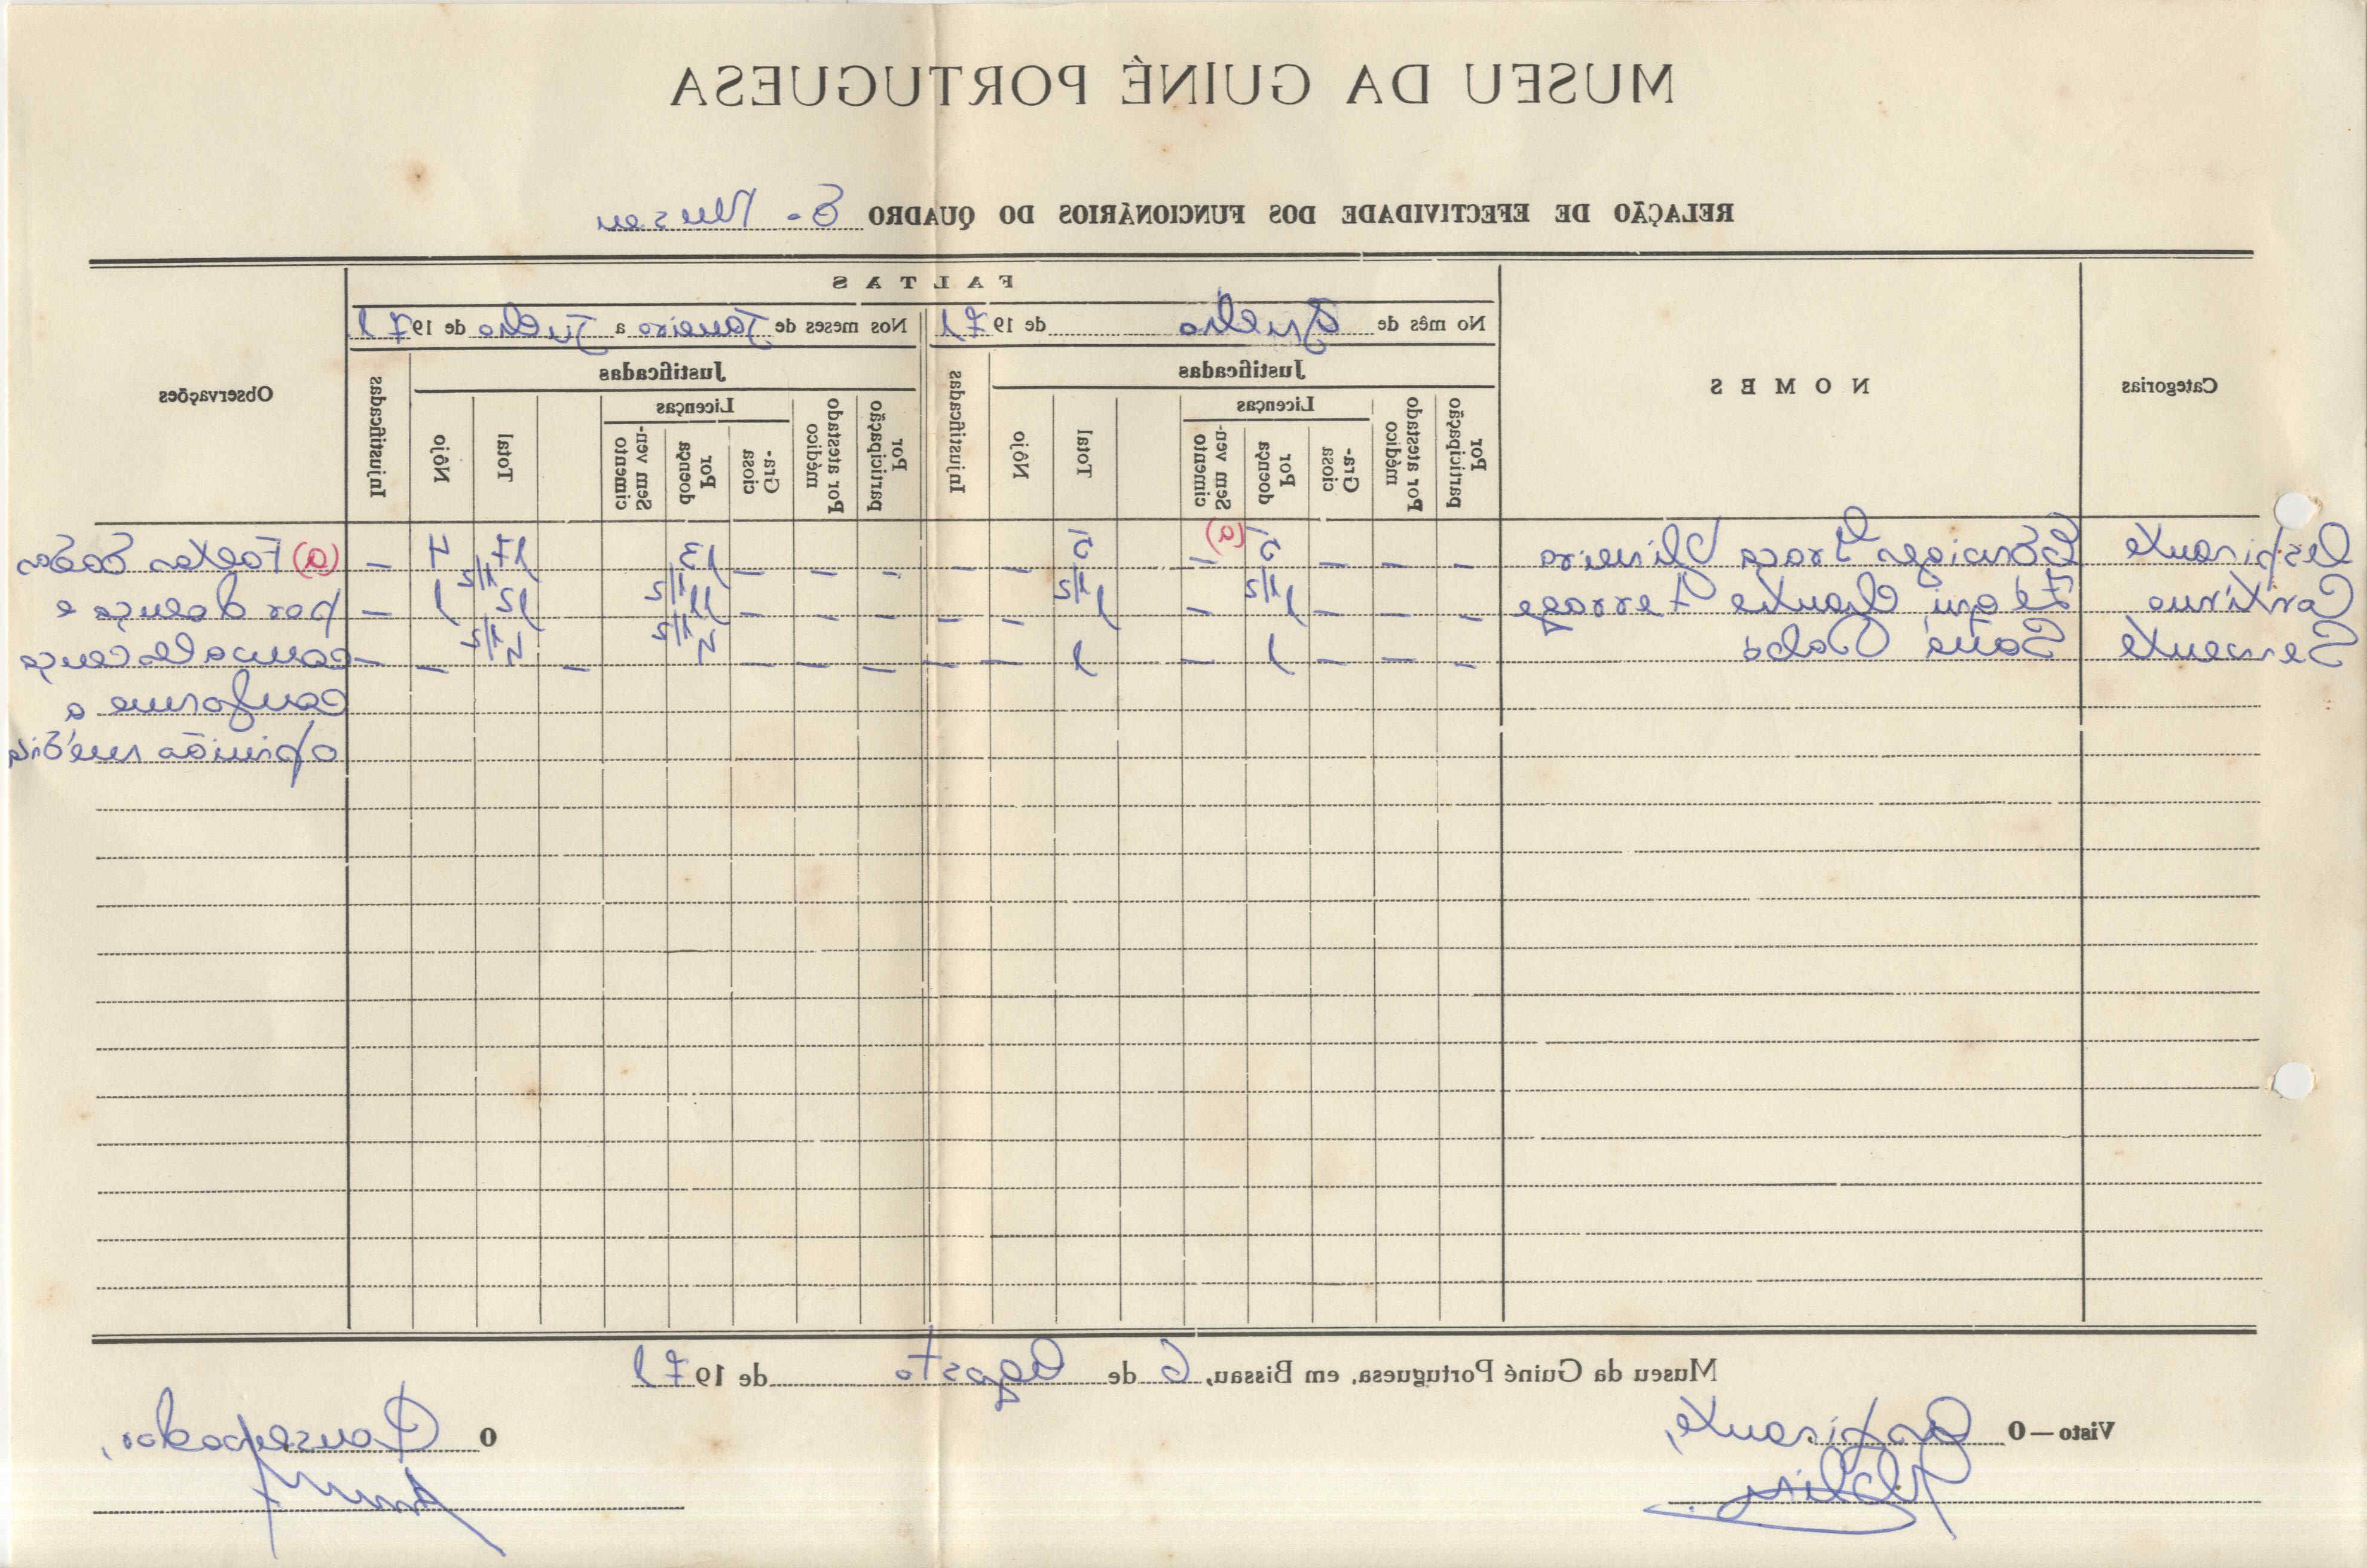 MUSEU DA GUINÉ PORTUGUESA
RELAÇÃO DE EFECTIVIDADE DOS FUNCIONÁRIOS DO QUADRO do Museu
Categorias
NOMES
FALTAS
No mês de Julho de 1971
Nos meses de Janeiro a Julho de 1971
Observações
Justificadas
Justificadas
Licenças
Licenças
Por participação
Por atestado médico
Graciosa
Por doença
Sem vencimento
Total
Nôjo
Injustificadas
Por participação
Por atestado médico
Graciosa
Por doença
Sem vencimento
Total
Nôjo
Injustificadas
Aspirante Graça Oliveira - - - 5 (a) - 5 - - - - - 13 17 4 - (a) Faltas dadas
Contínuo Duarte Ferrage - - - 1 1/2 - 1 1/2 - - - - - 11 1/2 12 1/2 1 - por doença e
Servente - - - 1 - 1 - - - - - 4 1/2 - 4 1/2 - - convalescença
conforme a
opinião médica
Museu da Guiné Portuguesa, em Bissau, 6 de Agosto de 1971
Visto—O Aspirante,
O Conservador,